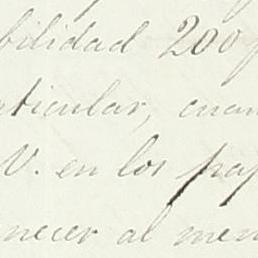 bilidad 200
ticular, cuan
V. en los pap
necer al men